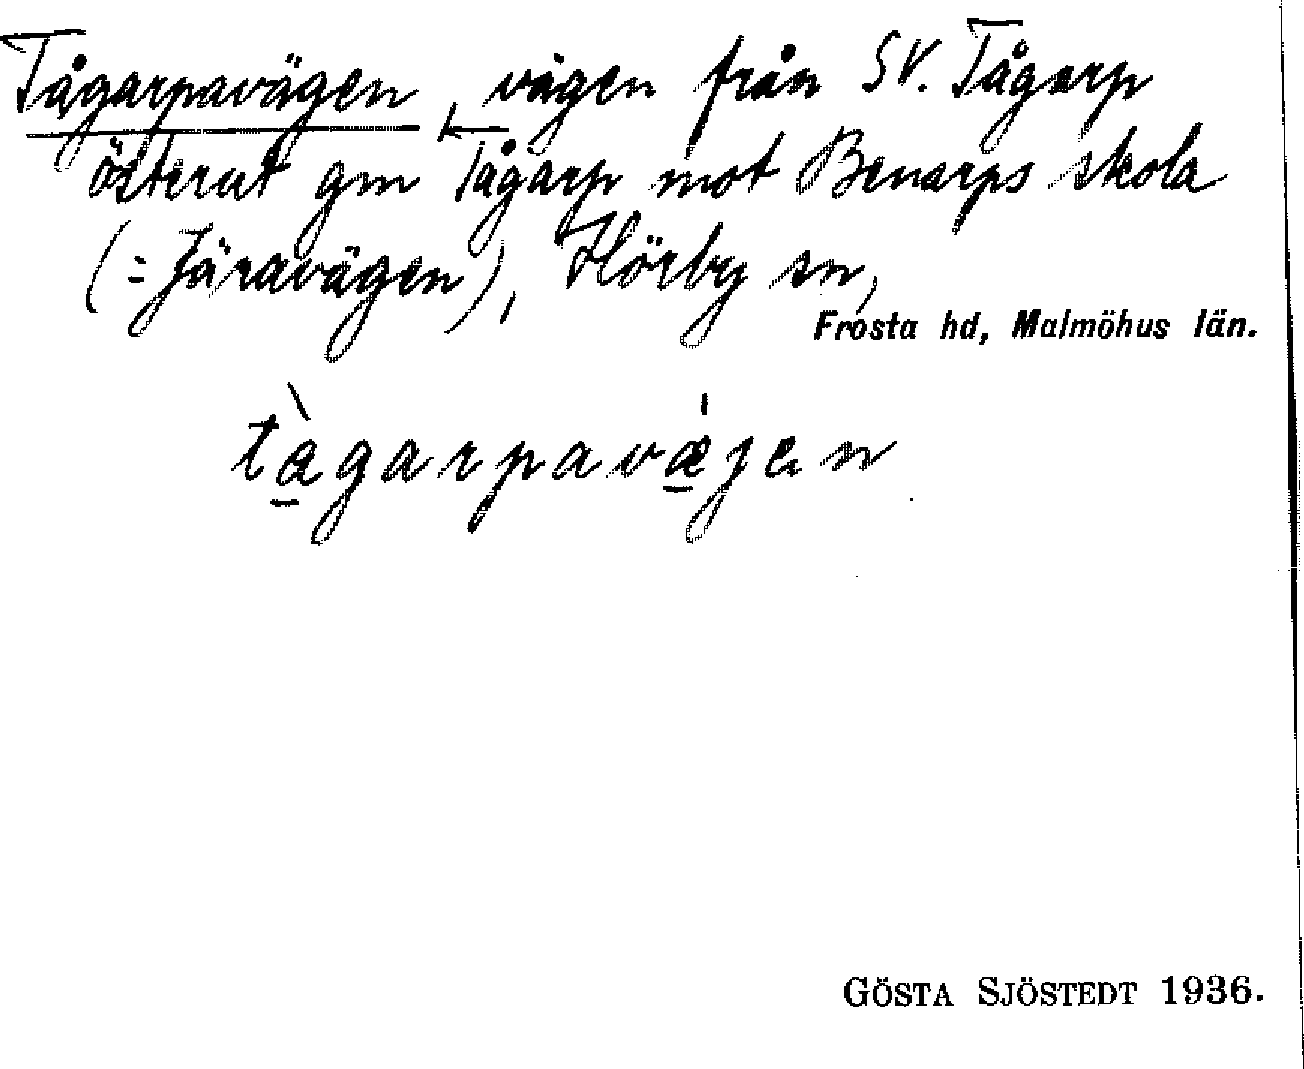 Tågarpavägen, vägen från SV. Tågarp
österut gm Tågarp mot Benarps skola
(= Järavägen), Hörby sn,
Frosta hd, Malmöhus län.
tàgarpavæ̠jen
GÖSTA SJÖSTEDT 1936.